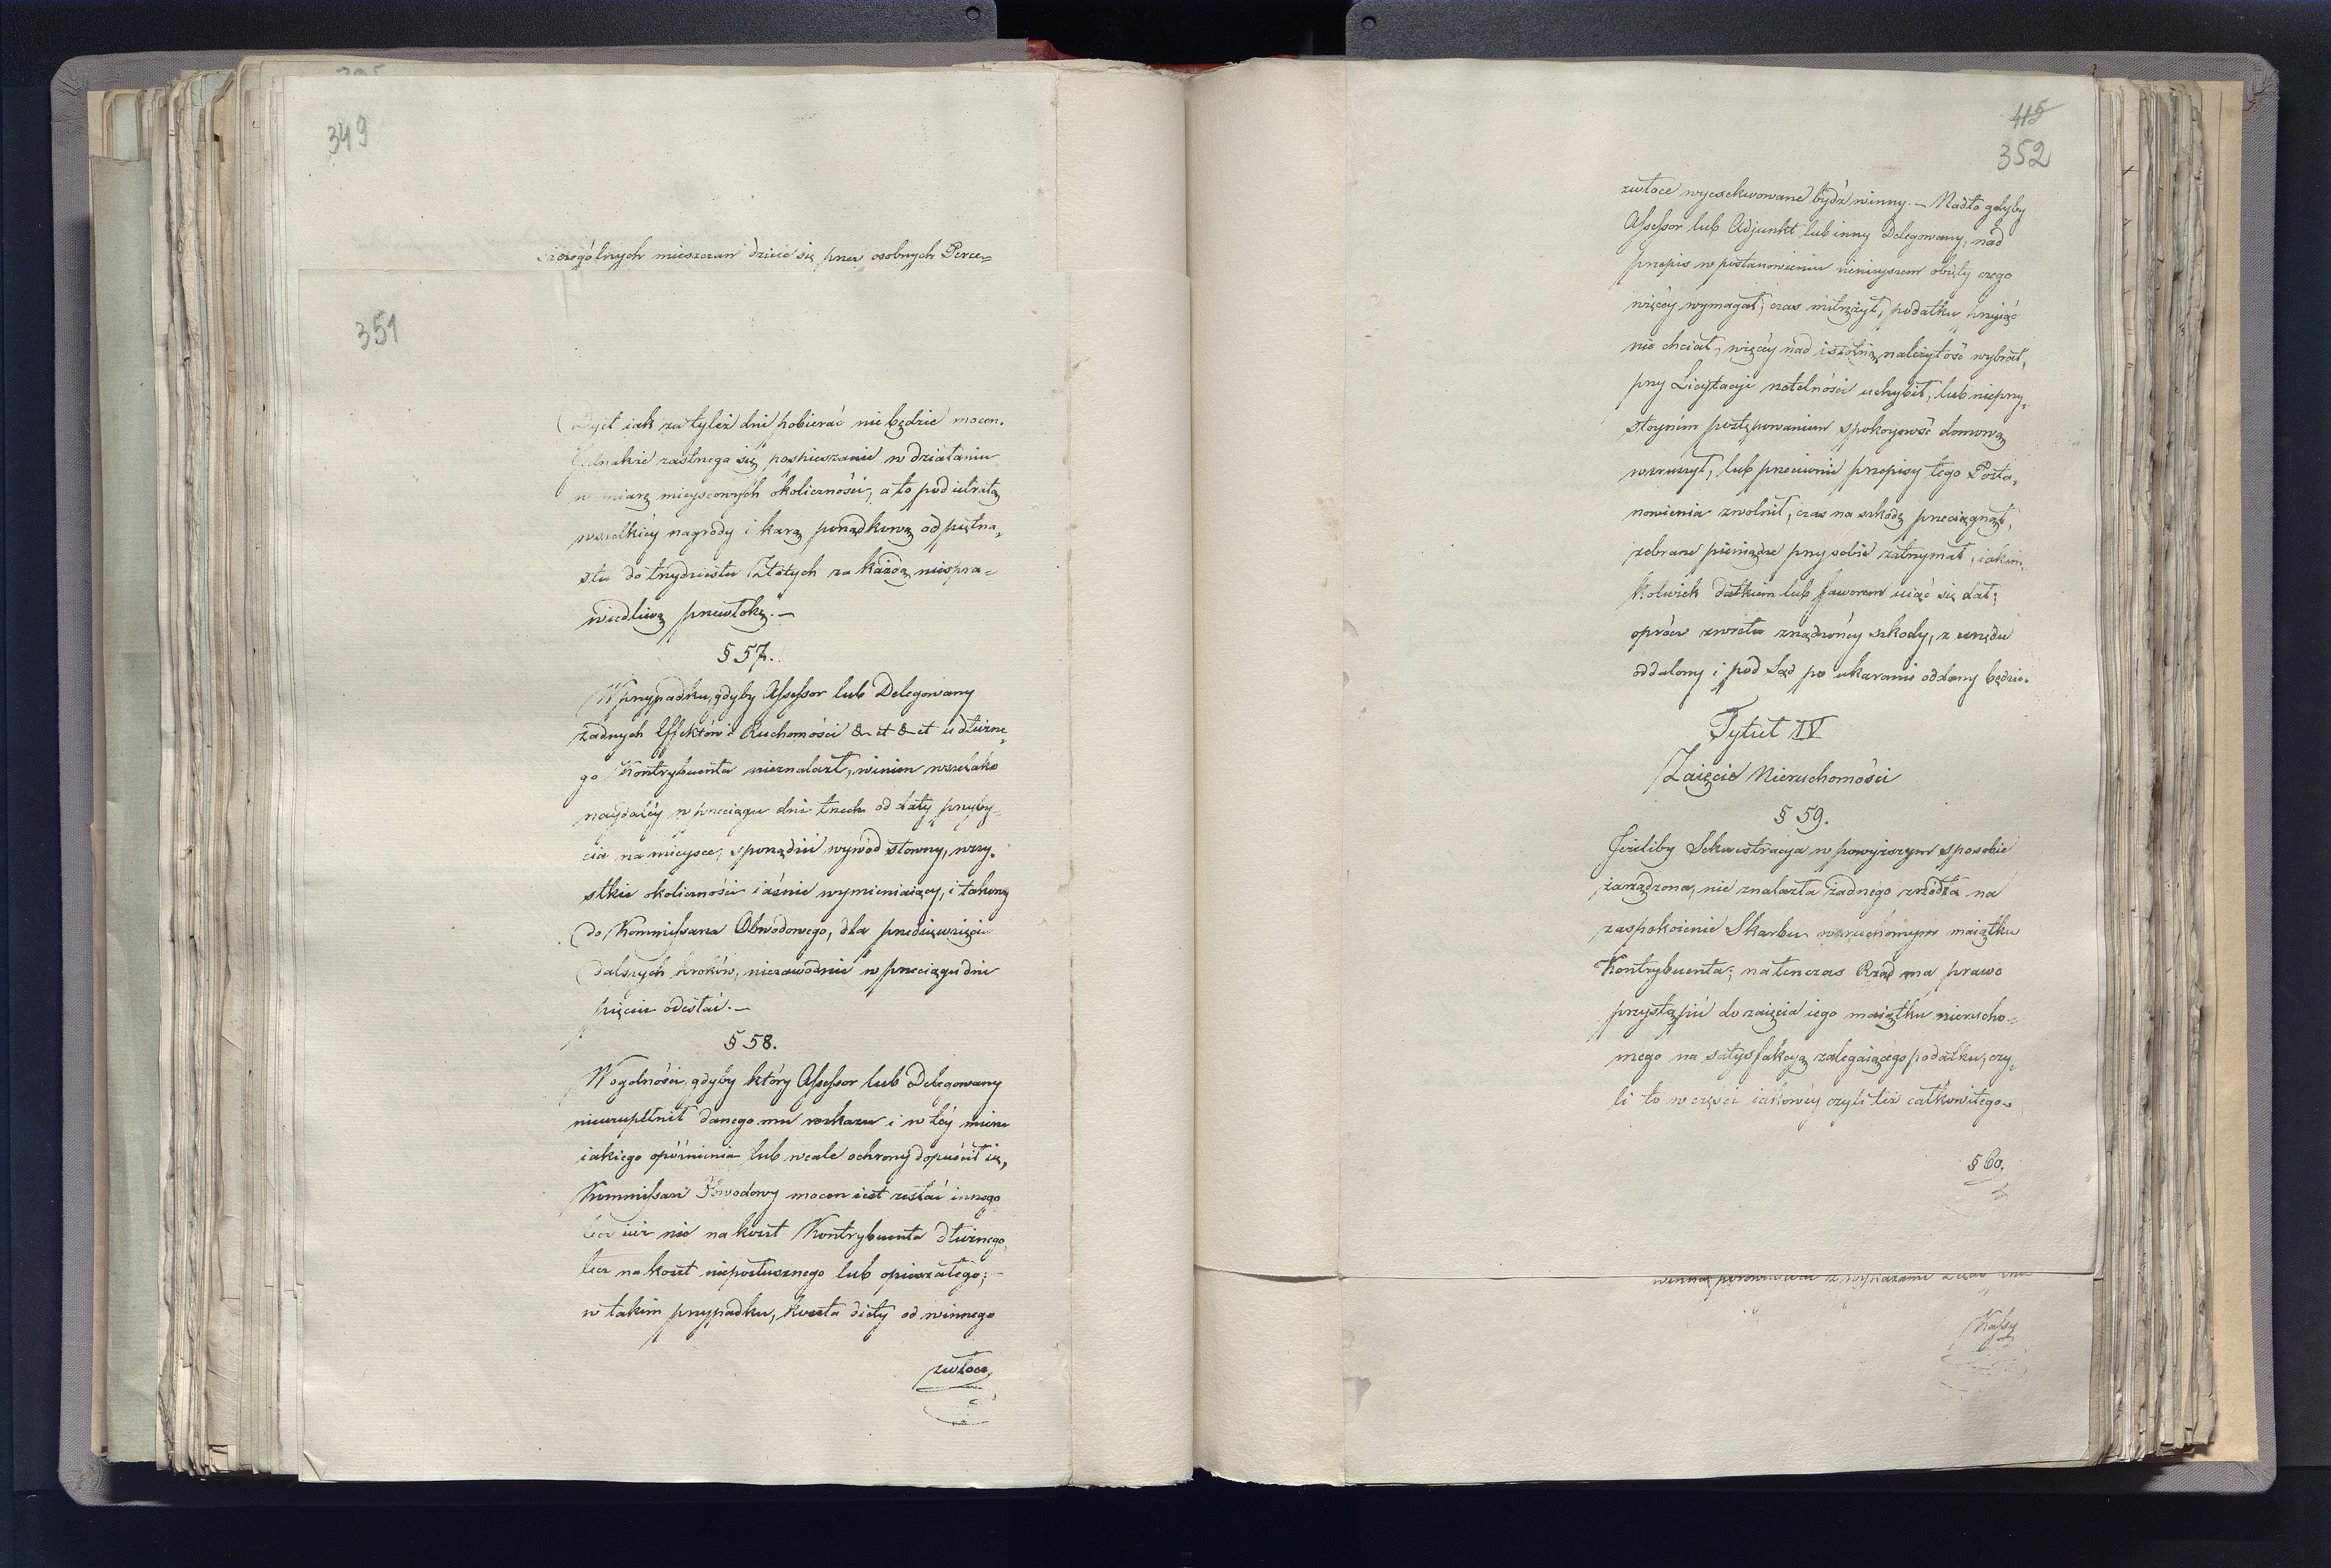 349
szczególnych mieszczan dzieć się przez osobnych Perce=
351
Dyet iak za tyleż dni pobierać nie będzie mocen.
Jednakże zastrzega się pospieszanie w działaniu
w miarę mieyscowych okoliczności, a to pod utratą
wszelkiéy nagrody i karą porządkową od piętna„
stu do trzydziestu Złotych za każdą niespra=
wiedliwą przewłokę.—
§ 57.
W przypadku, gdyby Assessor lub Delegowany
żadnych Effektów i Ruchomości & et & et u dłużne„
go Kontrybuenta nieznalazł, winien wszelako
naydaléy w przeciągu dni trzech od daty przyby„
cia na mieysce, sporządzić wywód słowny, wszy„
stkie okoliczności iaśnie wymieniaiący, i takowy
do Kommissarza Obwodowego, dla przedsięwzięcia
dalszych kroków, niezawodnie w przeciągu dni
pięciu odesłać.—
§ 58.
W ogólności, gdyby który Assessor lub Delegowany
nieuzupełnił danego mu rozkazu i w téy mierze
iakiego opóźnienia lub wcale ochrony dopuścił się,
Kommissarz Obwodowy mocen iest zesłać innego
lecz iuż nie na koszt Kontrybuenta dłużnego,
lecz na koszt nieposłusznego lub opieszałego;—
w takim przypadku, koszta diety od winnego
zwłoce
415
352
zwłoce wyexekwowane bydź winny.— Nadto gdyby
Assessor lub Adjunkt lub inny Delegowany, nad
przepis w postanowieniu ninieyszem obięty czego
więcéy wymagał, czas mitrężył, podatku przyiąć
nie chciał, więcéy nad istotną należytość wybrał,
przy Licytacyi rzetelności uchybił, lub nieprzy„
stoyném postępowaniem spokoyność domową
wzruszył, lub przeciwnie przepisy tego Posta„
nowienia zwolnił, czas na szkodę przeciągnął,
zebrane pieniądze przy sobie zatrzymał, iakim„
kolwiek datkiem lub faworem uiąć się dał;
oprócz zwrotu zrządzonéy szkody, z urzędu
oddalony i pod Sąd po ukaranie oddany będzie.
Tytuł IV
Zaięcie Nieruchomości
§ 59.
Jeżeliby Sekwestracya w powyższym sposobie
zarządzona, nie znalazła żadnego źródła na
zaspokoienie Skarbu w ruchomym maiątku
Kontrybuenta; natenczas Rząd ma prawo
przystąpić do zaięcia iego maiątku nierucho=
mego na satysfakcyą zalegaiącego podatku, czy„
li to w części iakowéy czyli też całkowitego.
§ 60.
winną porównana z wykazami
Kassy